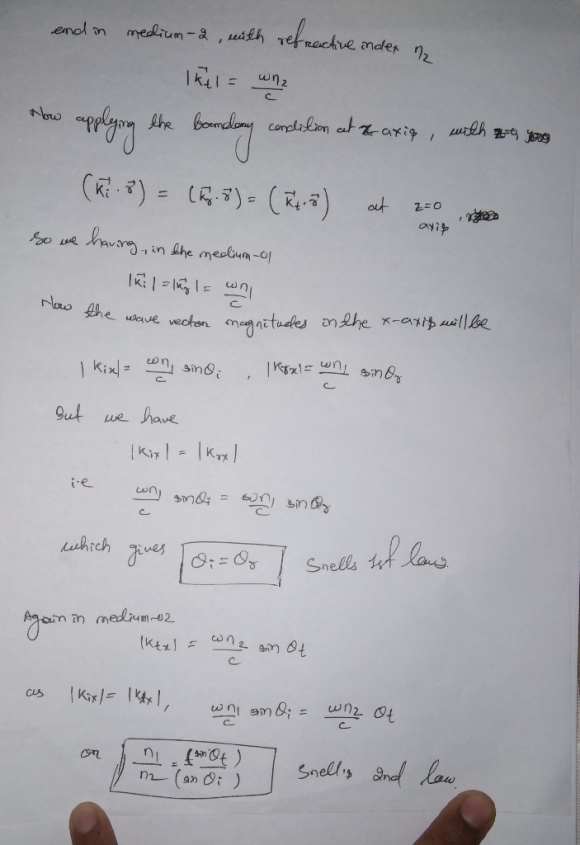 and in medium-2, with refractive index n₂
|k⃗t| = ωn₂/c
Now applying the boundary condition at z axis, with z=0
(k⃗i·r⃗) = (k⃗r·r⃗) = (k⃗t·r⃗) at z=0 axis,
So we having, in the medium-01
|k⃗i| = |k⃗r| = ωn₁/c
Now the wave vector magnitudes in the x-axis will be
|kix| = ωn₁/c sinθi, |krx| = ωn₁/c sinθr
But we have
|kix| = |krx|
i.e ωn₁/c sinθi = ωn₁/c sinθr
which gives θi = θr Snells 1st law.
Again in medium-02
|ktx| = ωn₂/c sin θt
as |kix| = |ktx|, ωn₁/c sinθi = ωn₂/c θt
or n₁/n₂ = (sinθt)/(sinθi) Snell's 2nd law.